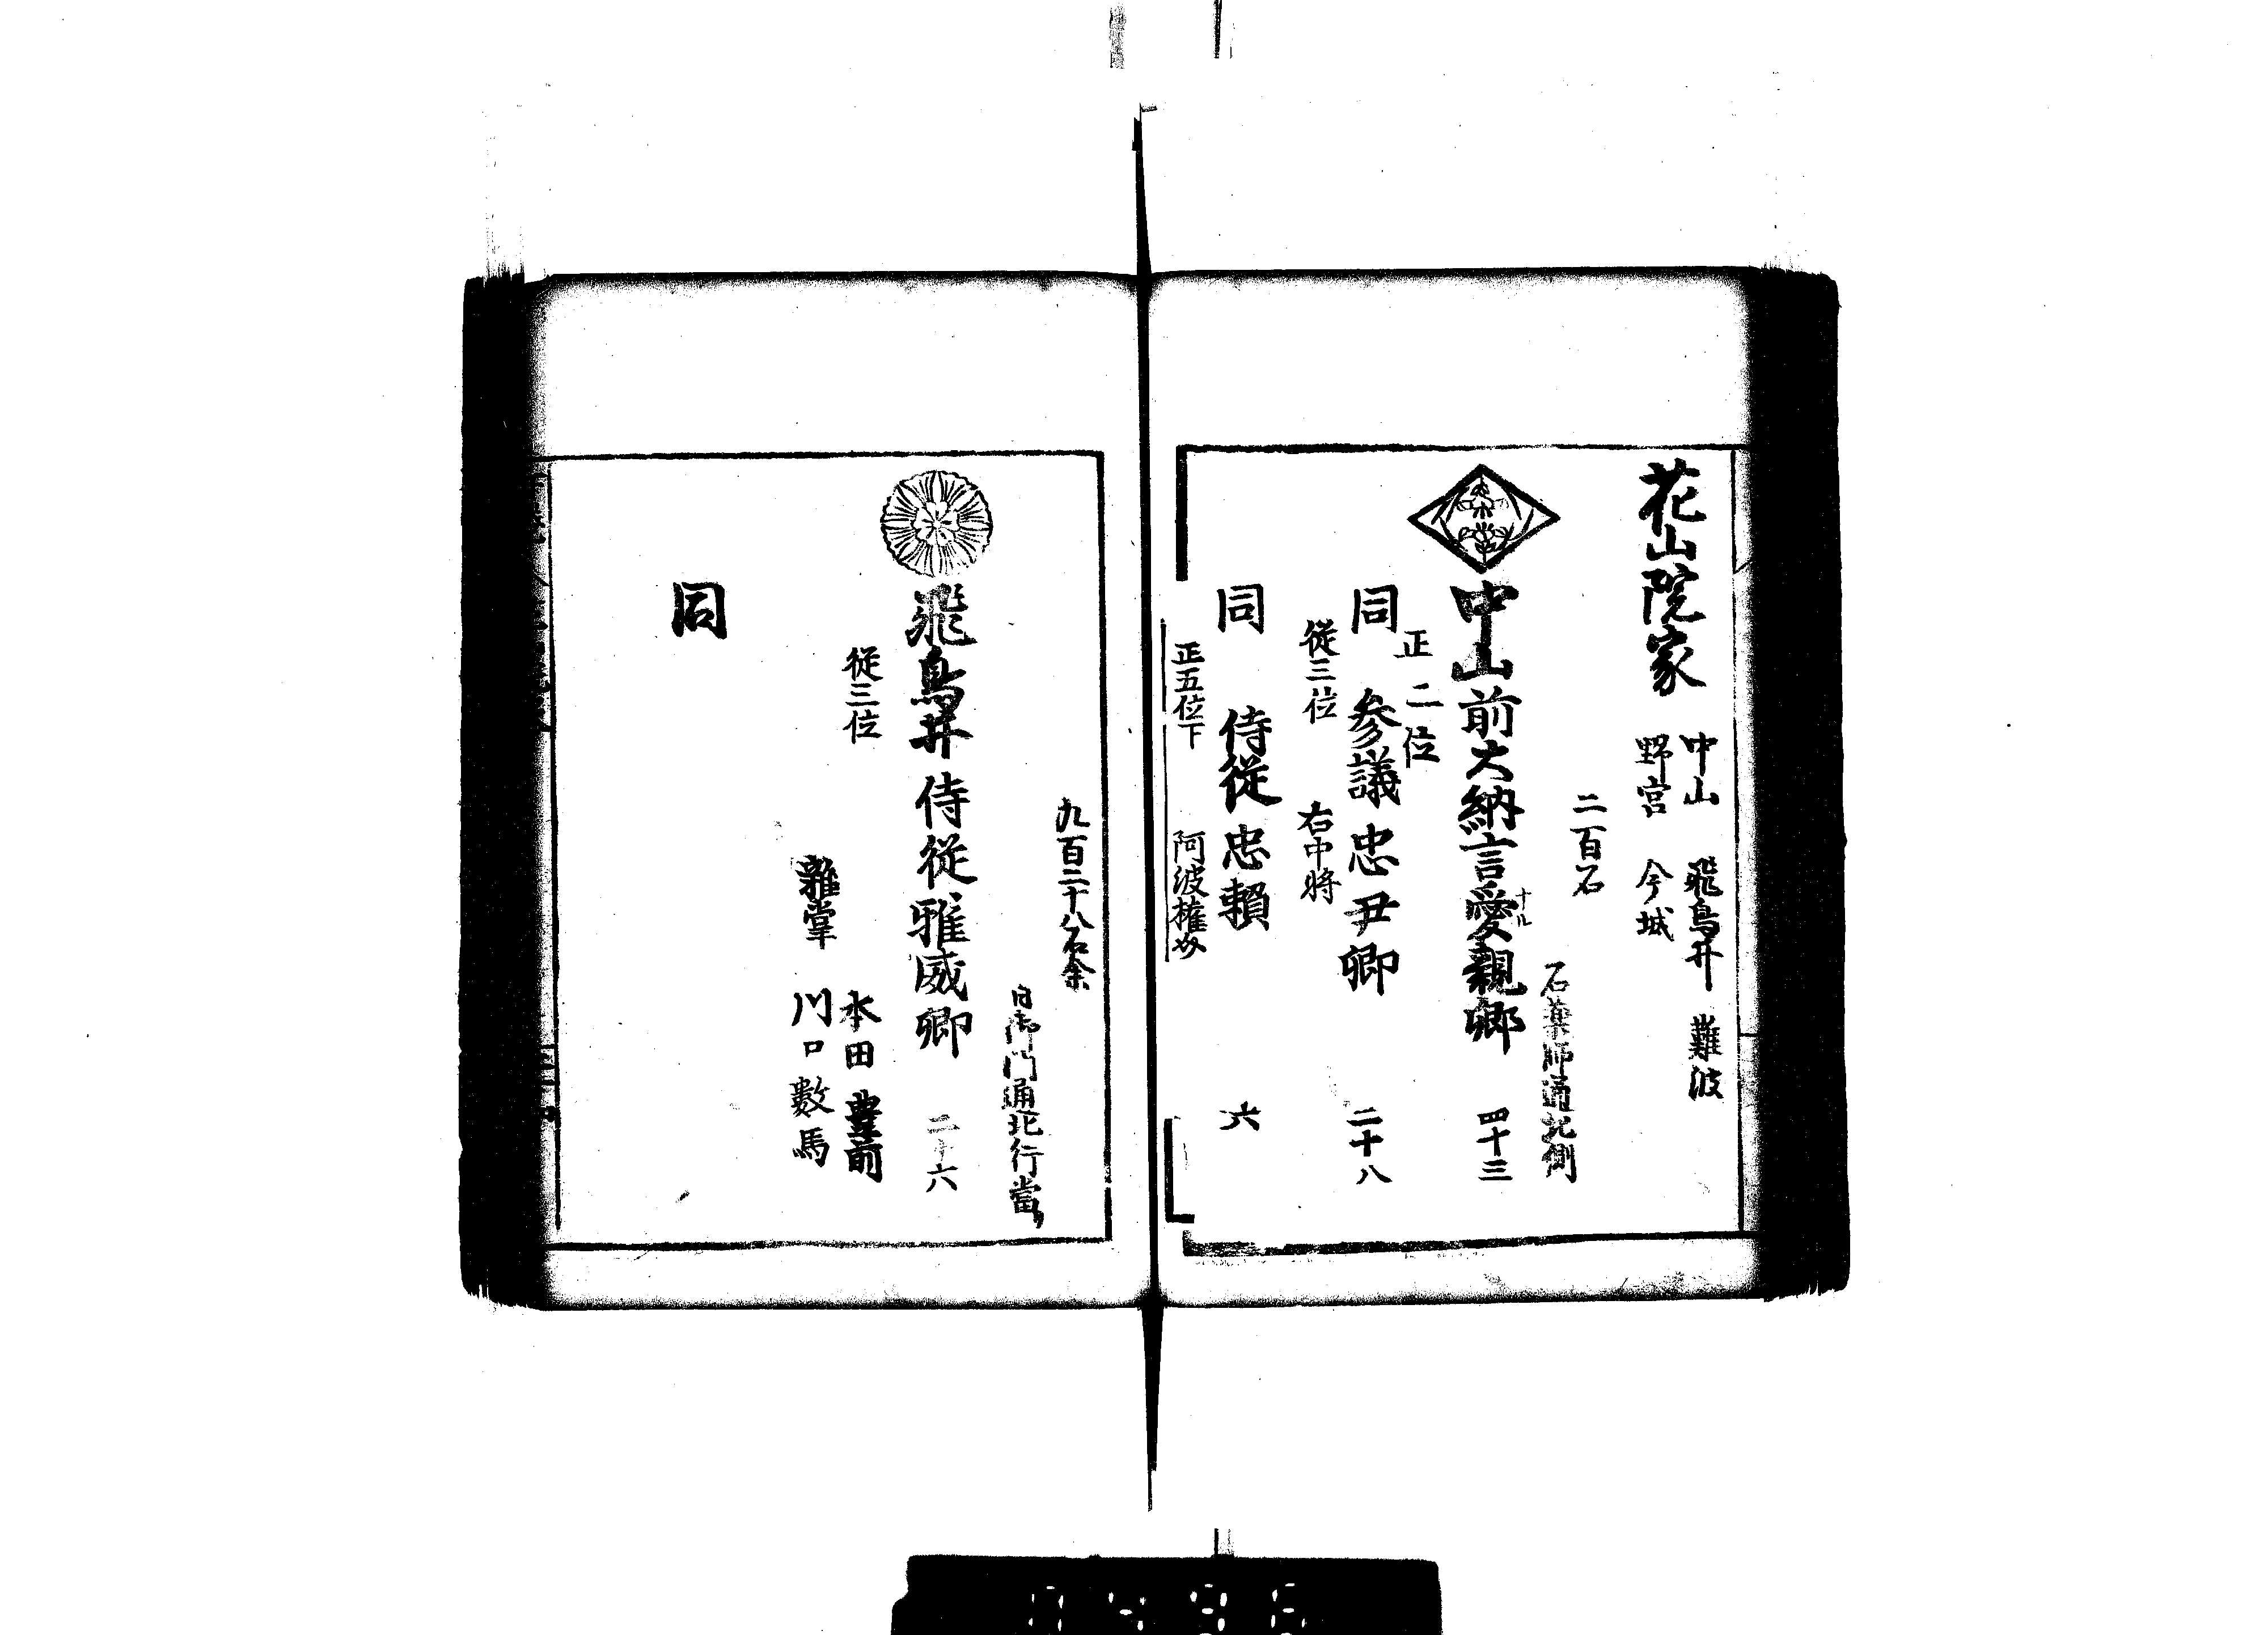 花山院家
中山 飛鳥井 難波
野宮 今城
二百石
石薬師通北側
中山前大納言愛親卿 四十三
ナル
正二位
同 参議忠尹卿 二十八
従三位 右中将
同 侍従忠頼 六
正五位下 阿波権介
九百二十八石余
日御門通北行當
飛鳥井侍従雅威卿 二十六
従三位
本田豊前
雜掌 川口數馬
同